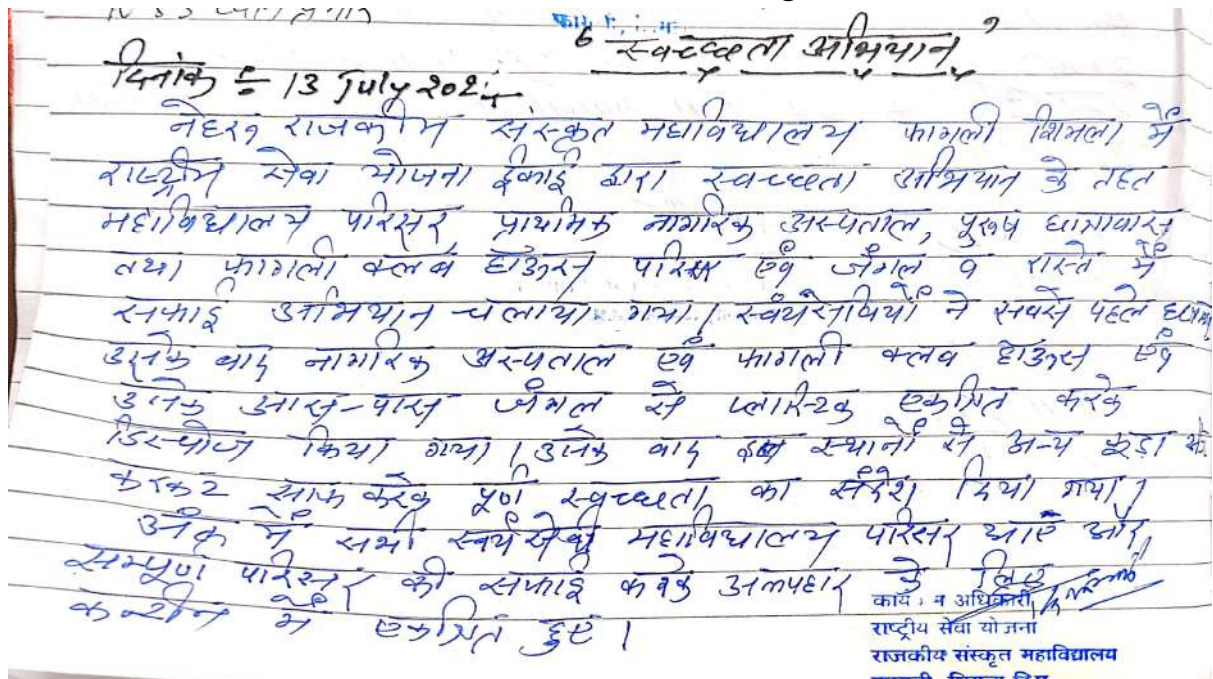 NSS
' स्वच्छता अभियान '
दिनांक :- 13 July 202
नेहरू राजकीय संस्कृत महाविद्यालय फागली शिमला में
राष्ट्रीय सेवा योजना ईकाई द्वारा स्वच्छता अभियान के तहत
महाविद्यालय परिसर, प्राथमिक नागरिक अस्पताल, पुरूष छात्रावास
तथा फागली क्लब हाऊस परिसर एवं जंगल व रास्ते में
सफाई अभियान चलाया गया। स्वयंसेवियों ने सबसे पहले
उसके बाद नागरिक अस्पताल एवं फागली क्लव हाऊस एवं
उनके आस-पास जंगल से प्लास्टिक एकत्रित करके
डिस्पोज किया गया। उसके बाद इन स्थानों से अन्य कूड़ा
करकट साफ करके पूर्ण स्वच्छता का संदेश दिया गया।
में सभी स्वयंसेवी महाविद्यालय परिसर आएं और
सम्पूर्ण परिसर की सफाई करके अल्पहार के लिए
कन्टीन में एकत्रित हुए।
अधिकारी
राष्ट्रीय सेवा योजना
राजकीय संस्कृत महाविद्यालय